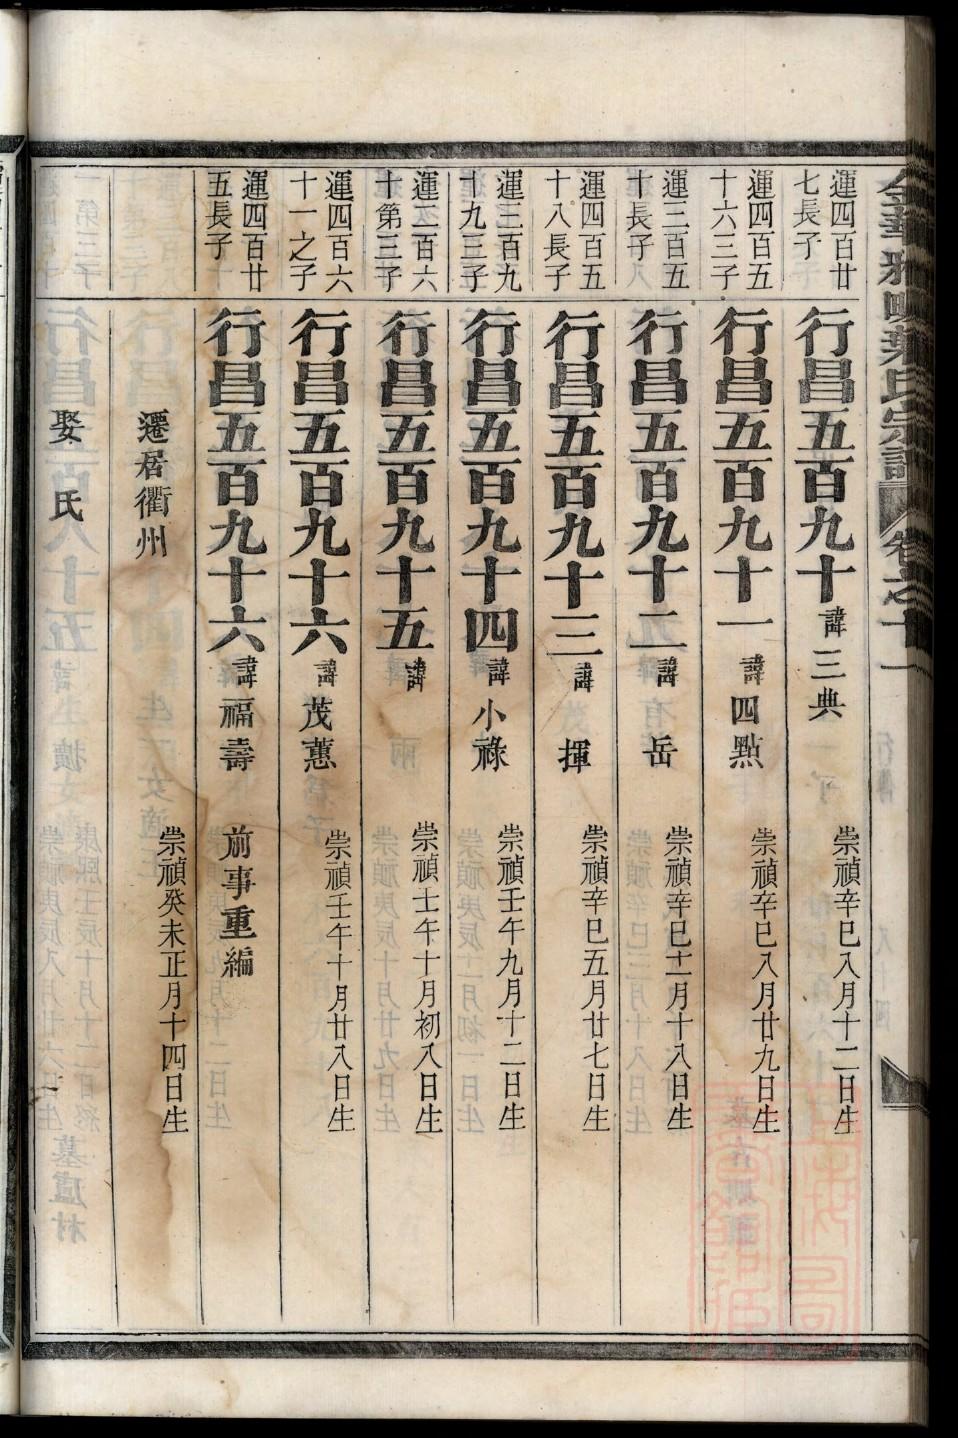 金華雅畈葉氏宗譜 卷之十一
運四百廿七長子
行昌五百九十 諱三典 崇禎辛巳八月十二日生
運四百五十六三子
行昌五百九十一 諱四點 崇禎辛巳八月廿九日生
運三百五十長子
行昌五百九十二 諱岳 崇禎辛巳十一月十八日生
運四百五十八長子
行昌五百九十三 諱揮 崇禎辛巳五月廿七日生
運三百九十九三子
行昌五百九十四 諱小祿 崇禎壬午九月十二日生
運三百六十第三子
行昌五百九十五 諱 崇禎壬午十月初八日生
運四百六十一之子
行昌五百九十六 諱茂蕙 崇禎壬午十月廿八日生
運四百廿五長子
行昌五百九十六 諱福壽 前事重編
遷居衢州 崇禎癸未正月十四日生
娶 氏